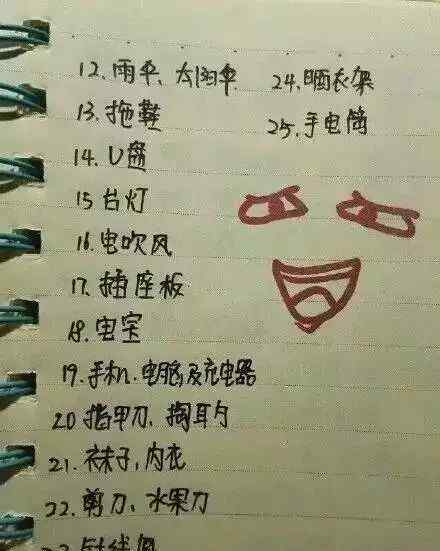 12、雨伞、太阳伞
13、拖鞋
14、U盘
15 台灯
16、电吹风
17、插座板
18、电宝
19、手机、电脑及充电器
20 指甲刀、掏耳勺
21、袜子,内衣
22、剪刀、水果刀
23 针线
24、晒衣架
25、手电筒